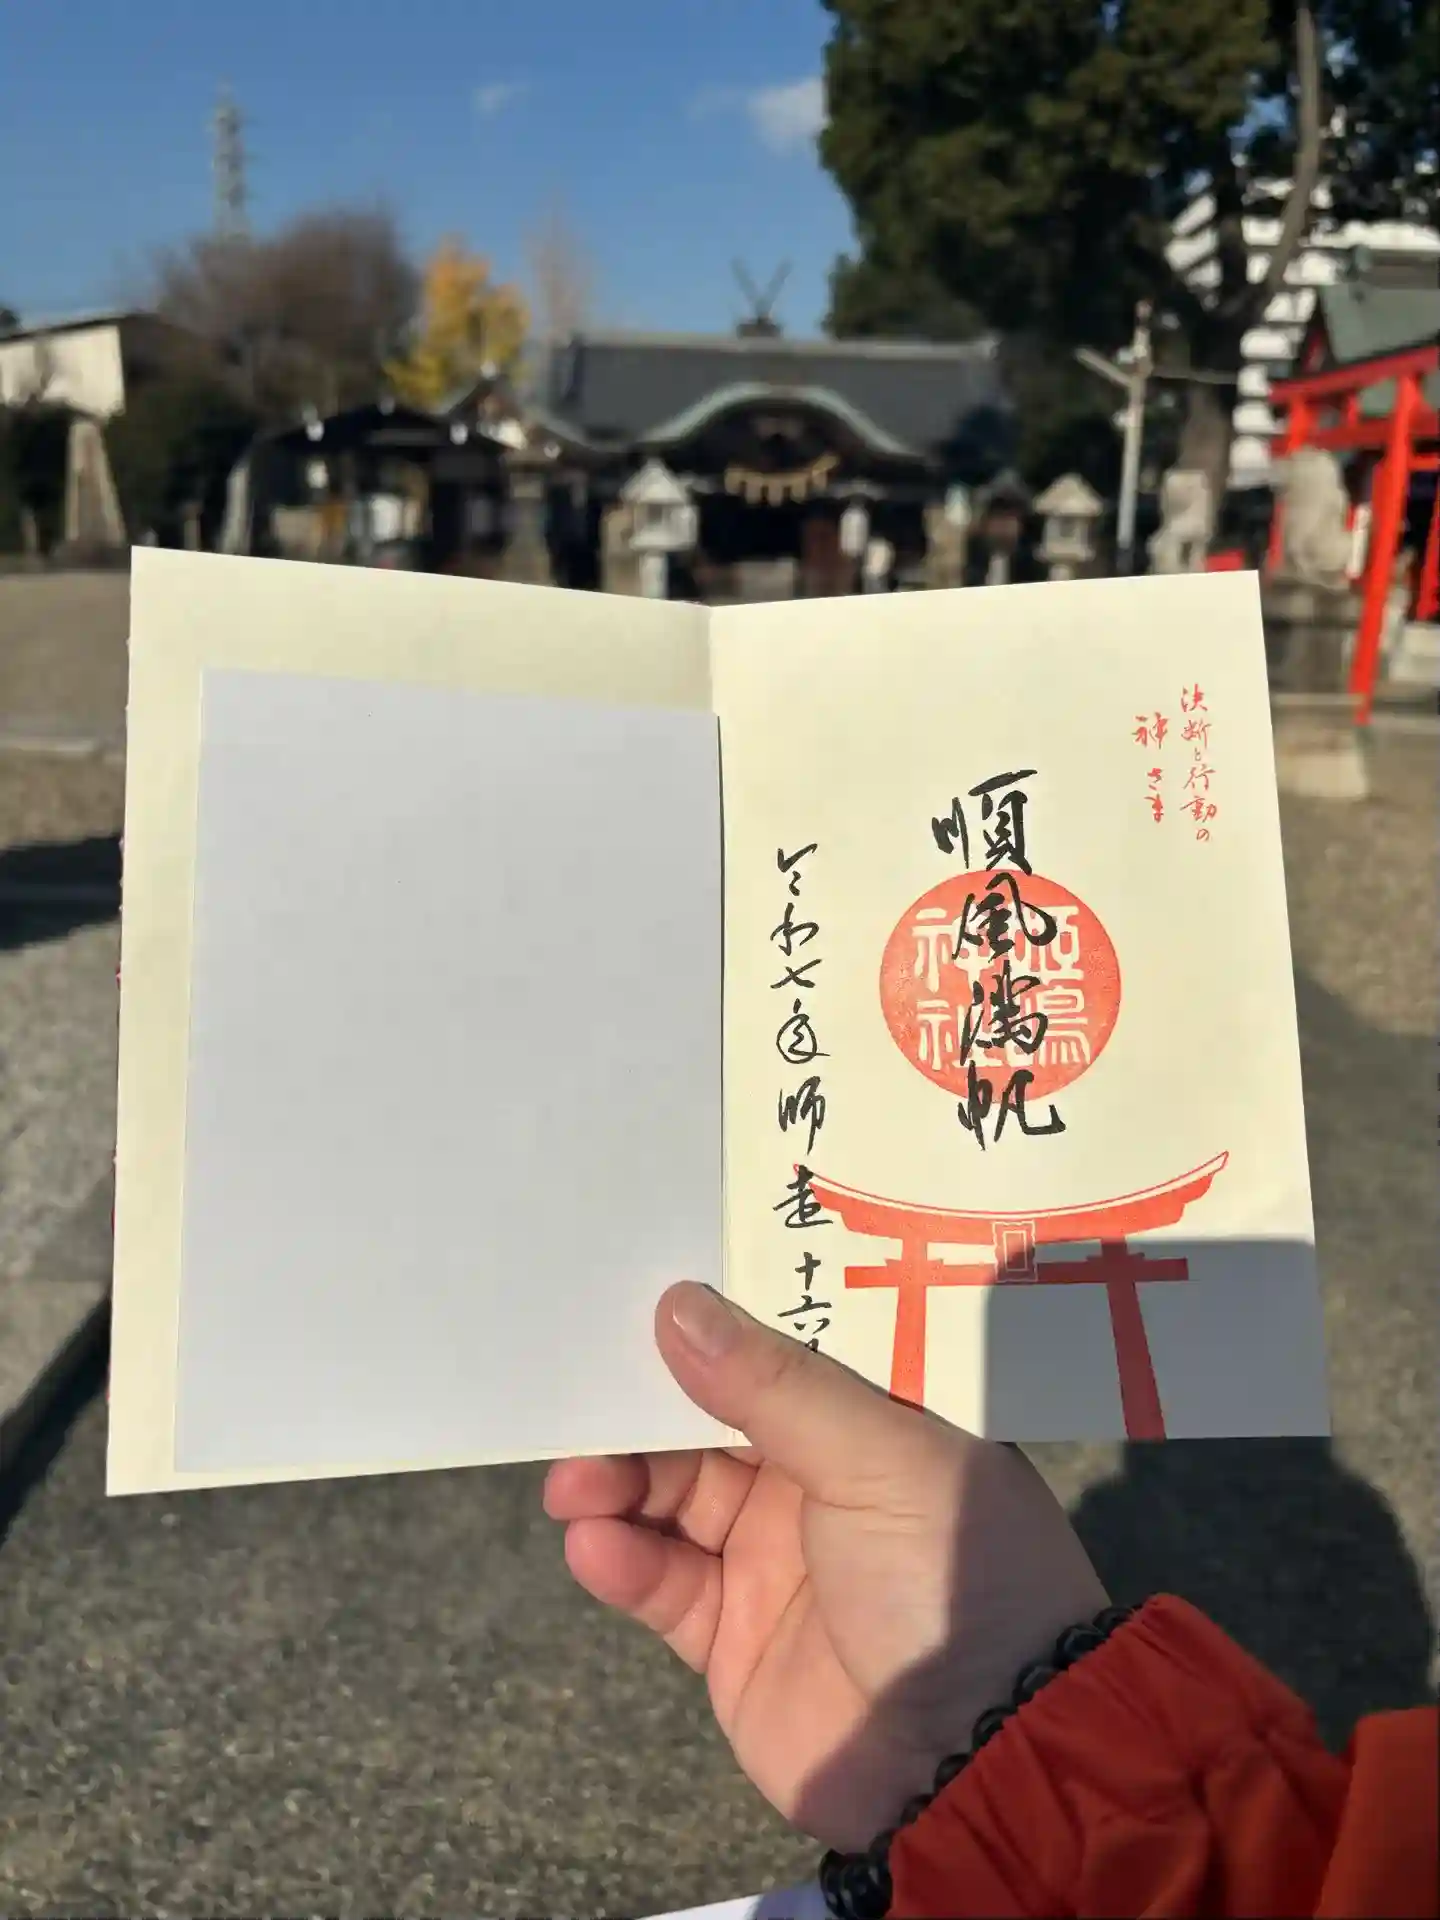 決断と行動の
神さま
順風満帆
姫嶋
神社
令和七年師走十六日